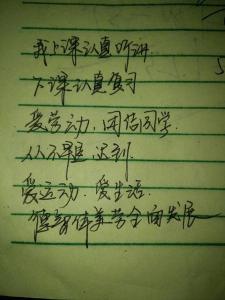 我上课认真听讲
下课认真复习
爱劳动,团结同学.
从不迟到.
爱运动.爱生活.
德智体美劳全面发展